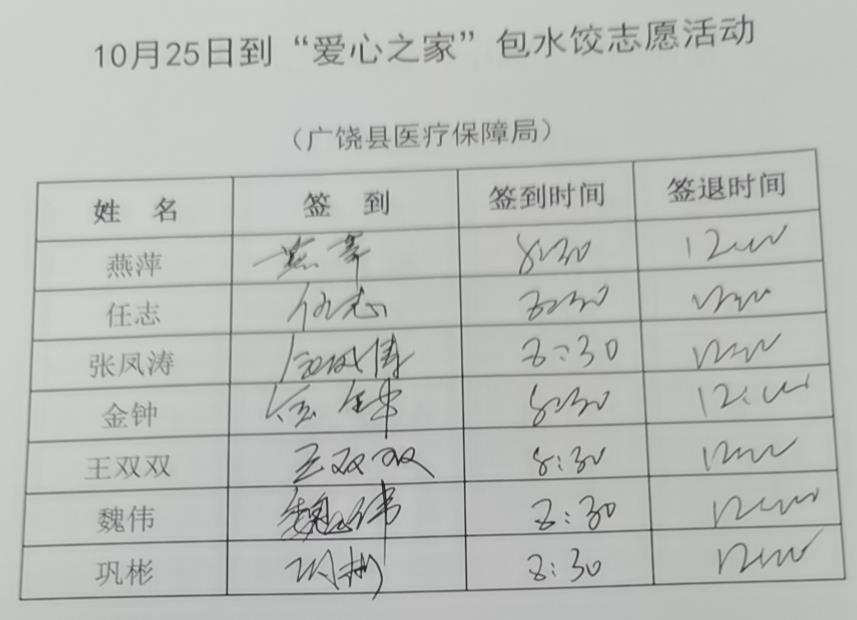 10月25日到“爱心之家”包水饺志愿活动
（广饶县医疗保障局）
姓 名 签 到 签到时间 签退时间
燕萍 燕萍 8:30 12:00
任志 任志 8:30 12:00
张凤涛 张凤涛 8:30 12:00
金钟 金钟 8:30 12:00
王双双 王双双 8:30 12:00
魏伟 魏伟 8:30 12:00
巩彬 巩彬 8:30 12:00